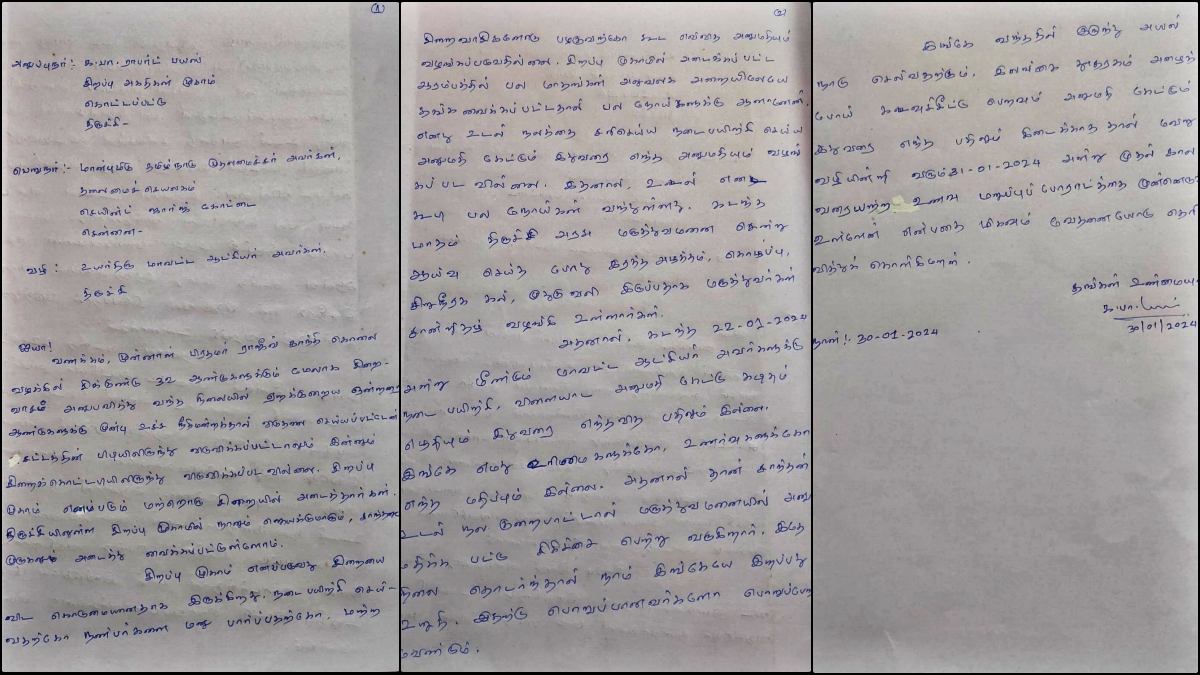 ①
அனுப்புநர் :- க.பா. ராபர்ட் பயஸ்
சிறப்பு அகதிகள் முகாம்
கொட்டப்பட்டு
திருச்சி -
பெறுநர் :- மாண்புமிகு தமிழ்நாடு முதலமைச்சர் அவர்கள்,
தலைமைச் செயலகம்
செயின்ட் ஜார்ஜ் கோட்டை
சென்னை -
வழி : உயர்திரு மாவட்ட ஆட்சியர் அவர்கள்,
திருச்சி
ஐயா!
வணக்கம், முன்னாள் பிரதமர் ராஜீவ் காந்தி கொலை
வழக்கில் சிக்குண்டு 32 ஆண்டுகளுக்கும் மேலாக சிறை-
வாசம் அனுபவித்து வந்த நிலையில் ஏறக்குறைய ஒன்றரை
ஆண்டுகளுக்கு முன்பு உச்ச நீதிமன்றத்தால் விடுதலை செய்யப்பட்டேன்
சட்டத்தின் பிடியிலிருந்து விடுவிக்கப்பட்டாலும் இன்னும்
சிறைக்கொட்டடியிலிருந்து விடுவிக்கப்பட வில்லை. சிறப்பு
முகாம் எனப்படும் மற்றொரு சிறையில் அடைத்தார்கள்.
திருச்சியிலுள்ள சிறப்பு முகாமில் நானும் ஜெயக்குமாரும், சாந்தனும்
முருகனும் அடைத்து வைக்கப்பட்டுள்ளோம்.
சிறப்பு முகாம் எனப்படுவது சிறையை
விட கொடுமையானதாக இருக்கிறது. நடை பயிற்சி செய்-
வதற்கோ நண்பர்களை மனு பார்ப்பதற்கோ, மற்ற
2)
சிறைவாசிகளோடு பழகுவதற்கோ கூட எவ்வித அனுமதியும்
வழங்கப்படுவதில்லை. சிறப்பு முகாமில் அடைக்கப்பட்ட
ஆரம்பத்தில் பல மாதங்கள் அலுவலக அறையிலேயே
தங்க வைக்கப்பட்டதால் பல நோய்களுக்கு ஆளானேன்.
எனது உடல் நலத்தை சரிசெய்ய நடைபயிற்சி செய்ய
அனுமதி கேட்டும் இதுவரை எந்த அனுமதியும் வழங்
கப்பட வில்லை. இதனால், உடல்
கூடி பல நோய்கள் வந்துள்ளது. கடந்த
மாதம் திருச்சி அரசு மருத்துவமனை சென்று
ஆய்வு செய்த போது இரத்த அழுத்தம், கொழுப்பு,
சிறுநீரக கல், முதுகு வலி இருப்பதாக மருத்துவர்கள்
சான்றிதழ் வழங்கி உள்ளார்கள்.
அதனால், கடந்த 22-01-2024
அன்று மீண்டும் மாவட்ட ஆட்சியர் அவர்களுக்கு
நடை பயிற்சி, விளையாட அனுமதி கேட்டு கடிதம்
எழுதியும் இதுவரை எந்தவித பதிலும் இல்லை.
இங்கே எமது உரிமைகளுக்கோ, உணர்வுகளுக்கோ
எந்த மதிப்பும் இல்லை. அதனால் தான் சாந்தன்
உடல் நல குறைபாட்டால் மருத்துவமனையில் அனு
மதிக்க பட்டு சிகிச்சை பெற்று வருகிறார். இதே
நிலை தொடர்ந்தால் நாம் இங்கேயே இறப்பது
உறுதி. இதற்கு பொறுப்பானவர்களே பொறுப்பேற்க
வேண்டும்.
இங்கே வந்ததில் இருந்து அயல்
நாடு செல்வதற்கும், இலங்கை தூதரகம் அழைத்
போய் கடவுச்சீட்டு பெறவும் அனுமதி கேட்டும்
இதுவரை எந்த பதிலும் கிடைக்காததால் வேறு
வழியின்றி வரும் 31-01-2024 அன்று முதல் கால
வரையற்ற உணவு மறுப்புப் போராட்டத்தை முன்னெடுக்
உள்ளேன் என்பதை மிகவும் வேதனையோடு தெரி
வித்துக் கொள்கிறேன்.
தங்கள் உண்மையு
க.பா.
30/01/2024
நாள் !- 30-01-2024